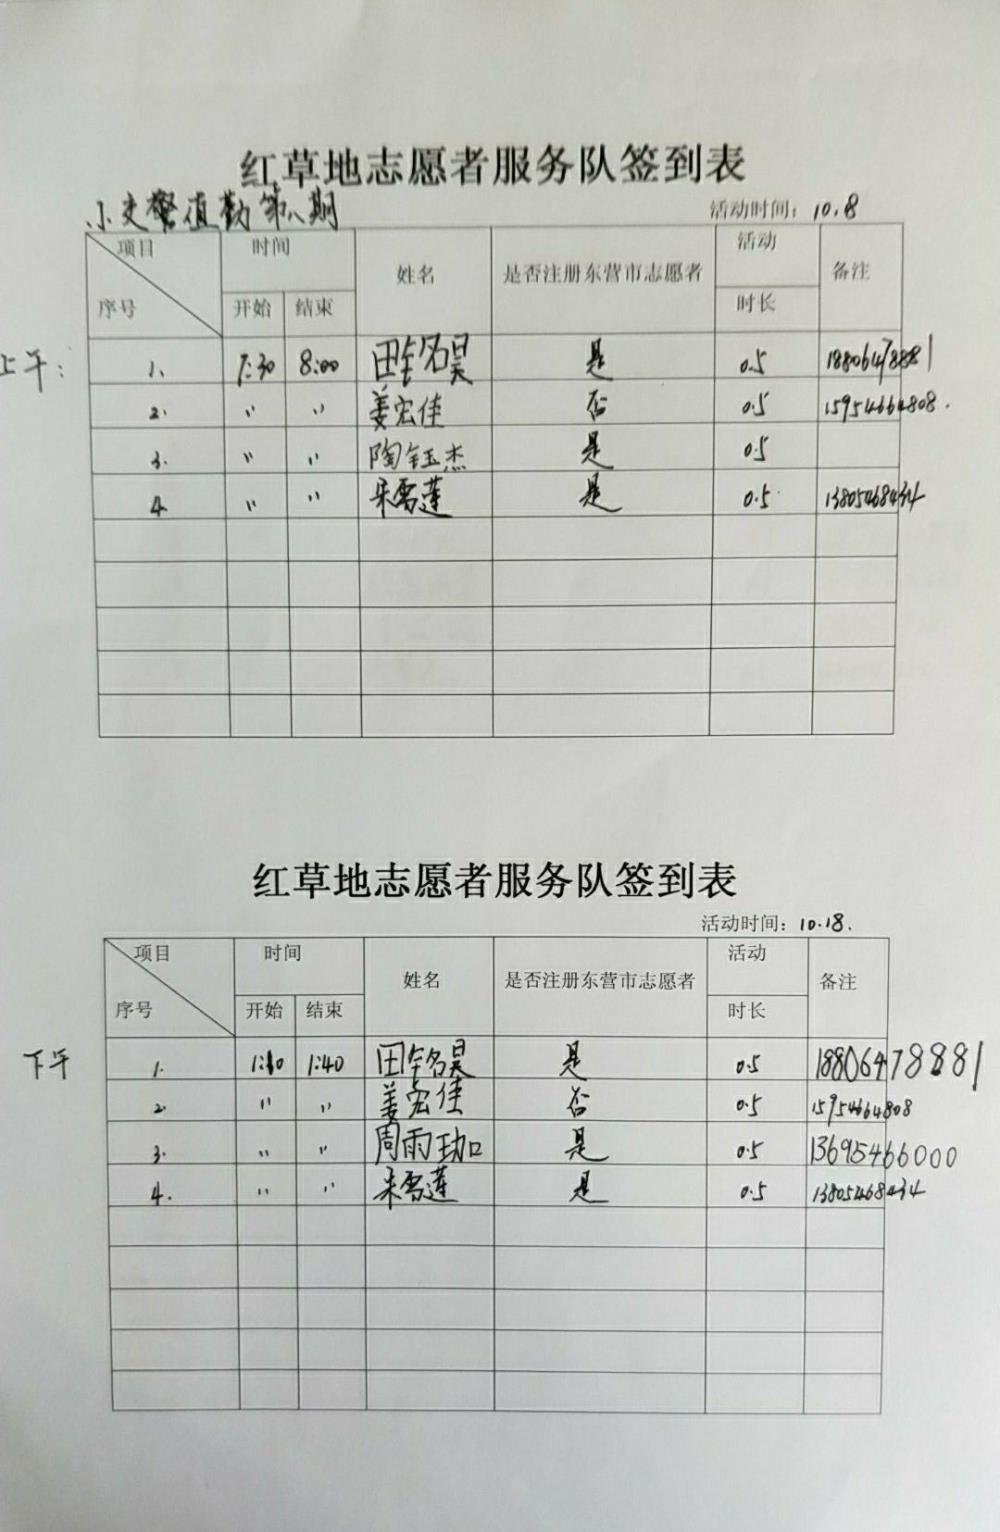 红草地志愿者服务队签到表
小交警值勤第八期 活动时间：10.8
项目 时间 姓名 是否注册东营市志愿者 活动 备注
序号 开始 结束 时长
上午：
1. 7:30 8:00 田 名昊 是 0.5 18806478881
2. 〃 〃 姜宏佳 否 0.5 15954664808.
3. 〃 〃 陶钰杰 是 0.5
4. 〃 〃 朱雪莲 是 0.5 13805468434
红草地志愿者服务队签到表
活动时间：10.18.
项目 时间 姓名 是否注册东营市志愿者 活动 备注
序号 开始 结束 时长
下午
1. 1:10 1:40 田 名昊 是 0.5 18806478881
2. 〃 〃 姜宏佳 否 0.5 15954664808
3. 〃 〃 周雨珈 是 0.5 13695466000
4. 〃 〃 朱雪莲 是 0.5 13805468434